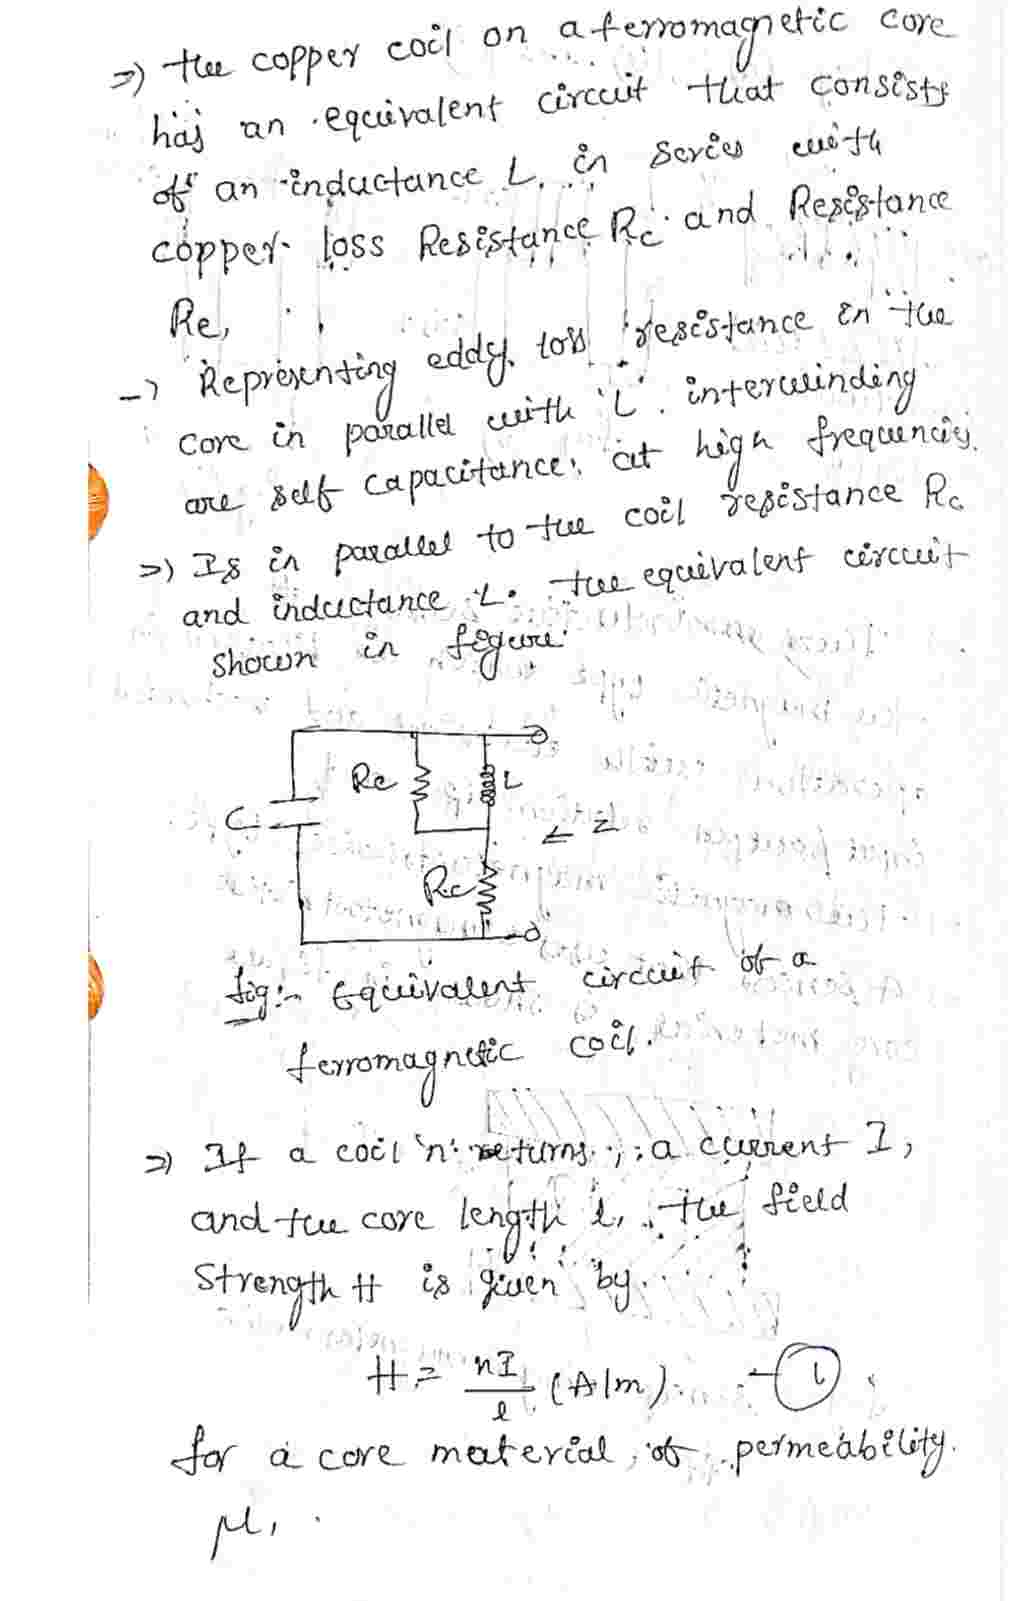 ⇒) the copper coil on a ferromagnetic core
has an equivalent circuit that consists
of an inductance L, in series with
copper loss Resistance Rc and Resistance
Re,
→ Representing eddy loss resistance in the
core in parallel with 'L'. interwinding
are self capacitance, at high frequencies.
⇒) Is in parallel to the coil resistance Rc
and inductance L. the equivalent circuit
shown in figure.
Re
L
C
← Z
Rc
fig:- Equivalent circuit of a
ferromagnetic coil.
⇒) If a coil 'n' returns, a current I,
and the core length l, the field
Strength H is given by.
H = nI/l (A/m) - ①
for a core material, of permeability.
μ,